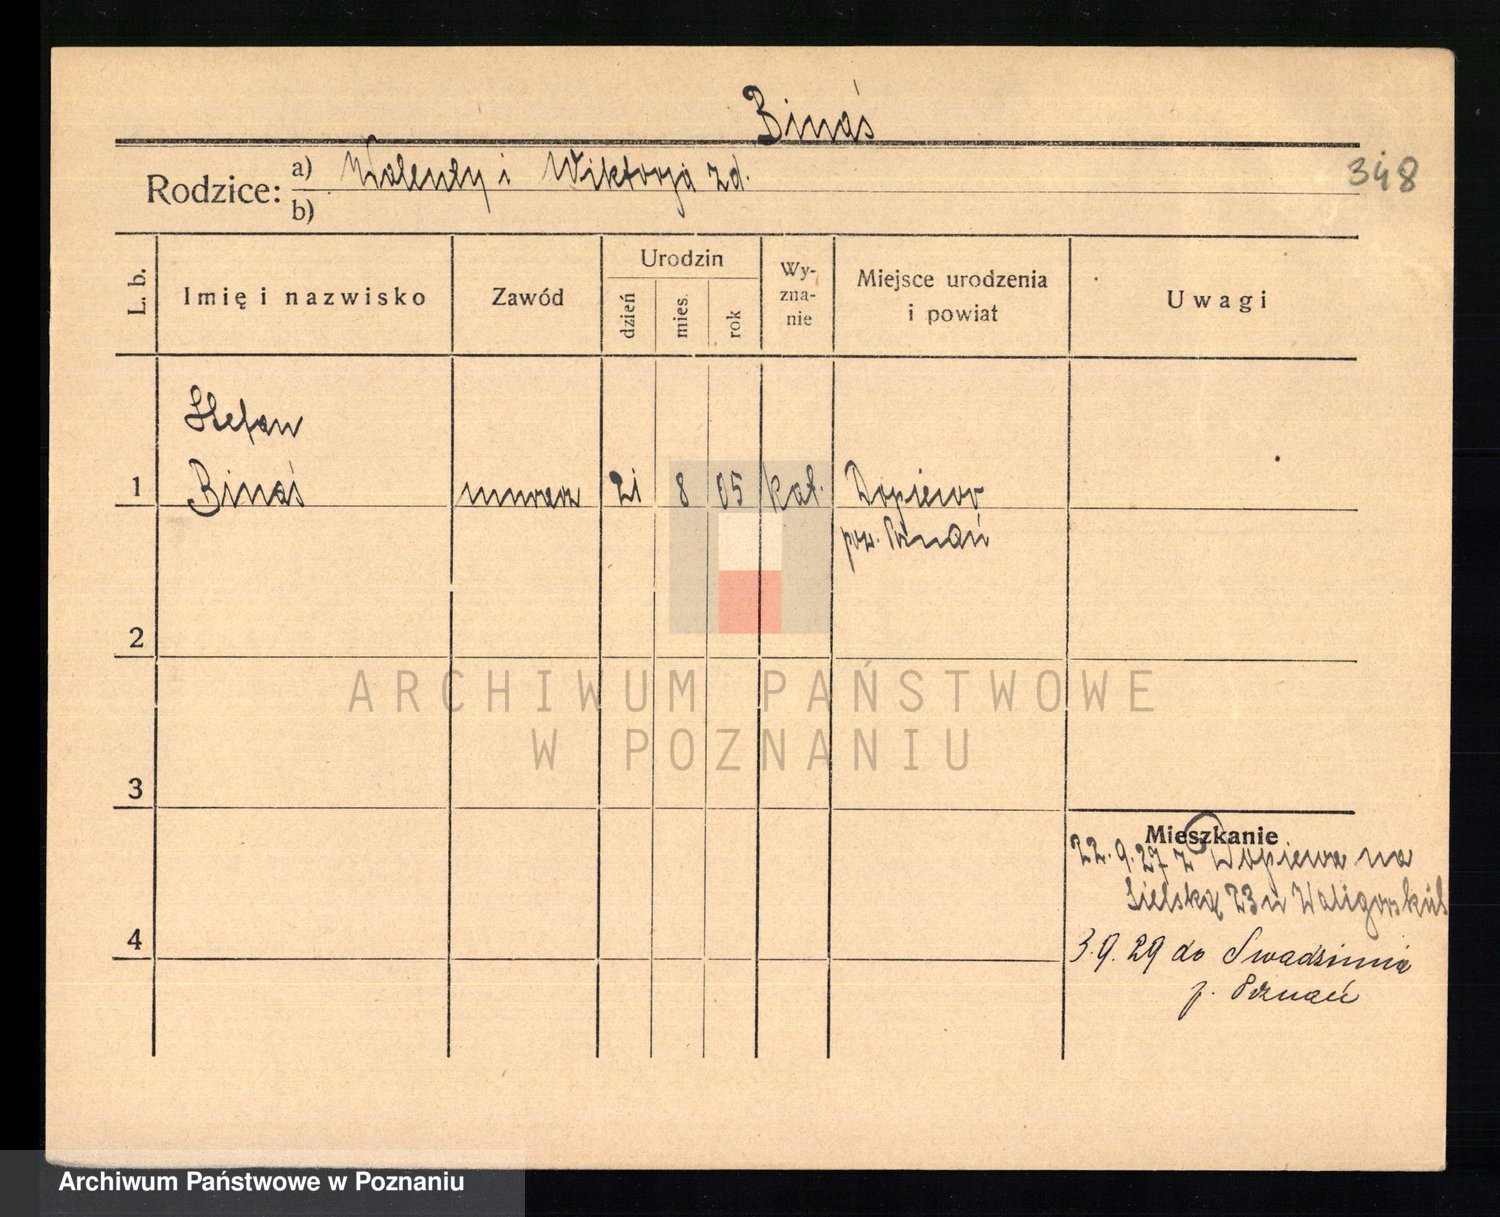 Binaś
Rodzice: a) Walenty i Wiktorja zd.
b)
348
L. b.
Imię i nazwisko
Zawód
Urodzin
dzień
mies.
rok
Wy-
zna-
nie
Miejsce urodzenia
i powiat
Uwagi
Stefan
1 Binaś murarz 21 8 05 kat. Dopiewo
pow. Poznań
2
ARCHIWUM PAŃSTWOWE
W POZNANIU
3
Mieszkanie
22.9.27 z Dopiewa na
Sielska 23 u
4
3.9.29 do Swadzimia
p. Poznań
Archiwum Państwowe w Poznaniu